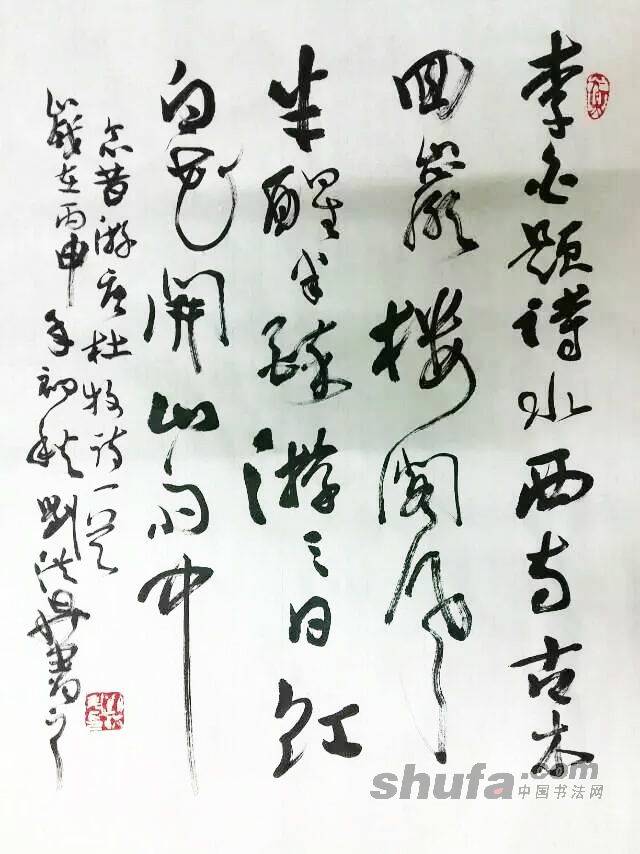 李白题诗水西寺古木
回岩楼阁风
半醒半醉游三日红
白花开山雨中
念昔游唐杜牧诗一首
岁在丙申年初秋刘洪
书
shufa.com
中国书法网